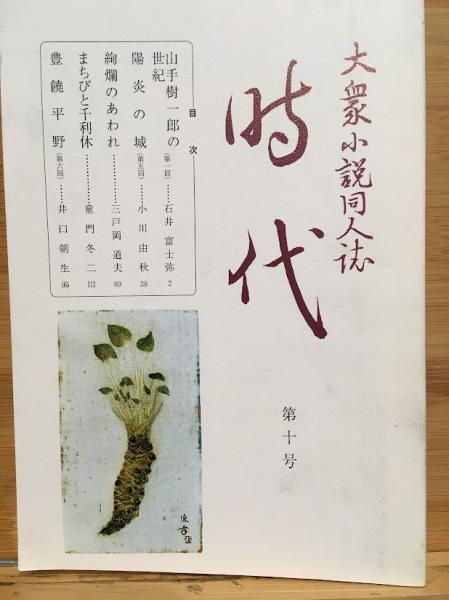 大衆小説同人誌
時代
第十号
目次
山手樹一郎の世紀(第一回)……石井冨士弥 2
陽炎の城(第五回)……小川由秋 38
絢爛のあわれ……三戸岡道夫 89
まちびと千利休……童門冬二 112
豊饒平野(第六回)……井口朝生 165